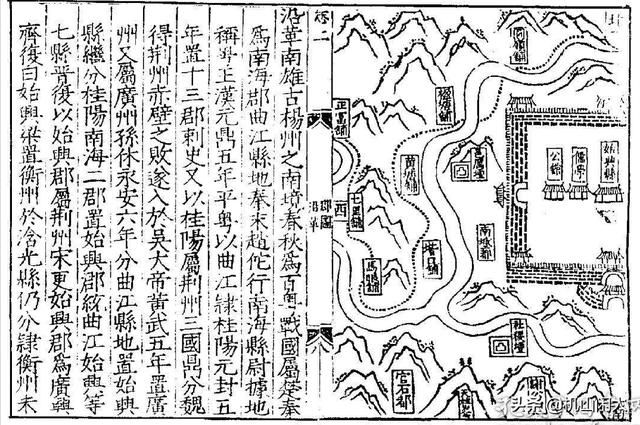 沿革南雄古楊州之南境春秋為百粵戰國屬楚秦
為南海郡曲江縣地秦末趙佗行南海縣尉據地
稱粵王漢元鼎五年平粵以曲江隸桂陽元封五
年置十三郡刺史又以桂陽屬荆州三國鼎分魏
得荆州赤壁之敗遂入於吳大帝黃武五年置廣
州又屬廣州孫休永安六年分曲江縣地置始興
縣繼分桂陽南海二郡置始興郡統曲江始興等
七縣晉復以始興郡屬荆州宋更始興郡為廣興
齊復曰始興梁置衡州於含光縣仍分隸衡州未
卷二
郡圖
沿革
始興縣
公館
社稷壇
塔石舖
馬頭舖
七里舖
正富舖
西